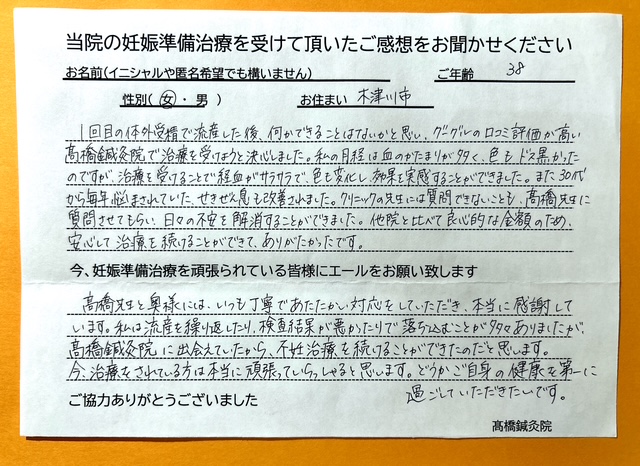 当院の妊娠準備治療を受けて頂いたご感想をお聞かせください
お名前(イニシャルや匿名希望でも構いません) ご年齢 38
性別( 女 ・ 男 ) お住まい 木津川市
1回目の体外受精で流産した後、何かできることはないかと思い、グーグルの口コミ評価が高い
髙橋鍼灸院で治療を受けようと決心しました。私の月経は血のかたまりが多く、色もドス黒かった
のですが、治療を受けることで経血がサラサラで、色も変化し効果を実感することができました。また30代
から毎年悩まされていた、せきぜん息も改善されました。クリニックの先生には質問できないことも、髙橋先生に
質問させてもらい、日々の不安を解消することができました。他院と比べて良心的な金額のため、
安心して治療を続けることができて、ありがたかったです。
今、妊娠準備治療を頑張られている皆様にエールをお願い致します
髙橋先生と奥様には、いつも丁寧であたたかい対応をしていただき、本当に感謝して
います。私は流産を繰り返したり、検査結果が悪かったりで落ち込むことが多々ありましたが、
髙橋鍼灸院に出会えていたから、不妊治療を続けることができたのだと思います。
今、治療をされている方は本当に頑張っていらっしゃると思います。どうかご自身の健康を第一に
過ごしていただきたいです。
ご協力ありがとうございました
髙橋鍼灸院